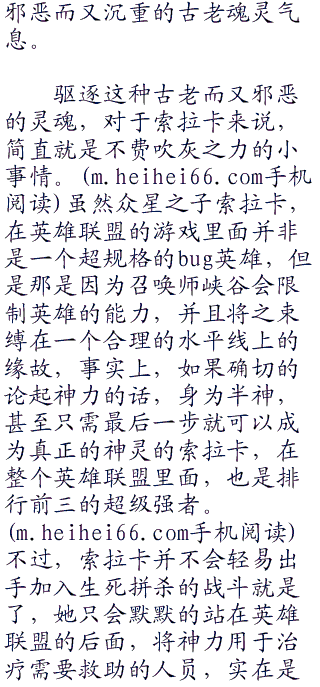 邪恶而又沉重的古老魂灵气
息。
驱逐这种古老而又邪恶
的灵魂，对于索拉卡来说，
简直就是不费吹灰之力的小
事情。(m.heihei66.com手机
阅读)虽然众星之子索拉卡，
在英雄联盟的游戏里面并非
是一个超规格的bug英雄，但
是那是因为召唤师峡谷会限
制英雄的能力，并且将之束
缚在一个合理的水平线上的
缘故，事实上，如果确切的
论起神力的话，身为半神，
甚至只需最后一步就可以成
为真正的神灵的索拉卡，在
整个英雄联盟里面，也是排
行前三的超级强者。
(m.heihei66.com手机阅读)
不过，索拉卡并不会轻易出
手加入生死拼杀的战斗就是
了，她只会默默的站在英雄
联盟的后面，将神力用于治
疗需要救助的人员，实在是